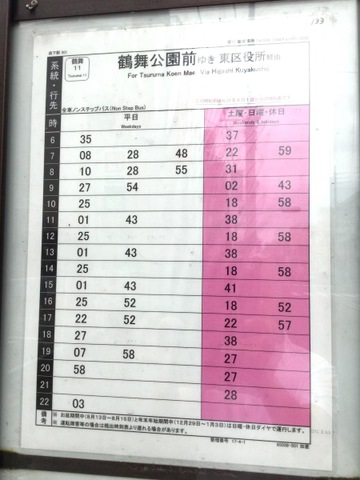 133
鶴舞
11
Tsurumai 11
系統・行先
鶴舞公園前ゆき 東区役所経由
For Tsuruma Koen Mae Via Higashi Kuyakusho
全車ノンステップバス(Non Step Bus)
時 平日 土曜・日曜・休日
Weekdays
6 35 37
7 08 28 48 22 59
8 10 28 55 31
9 27 54 02 43
10 25 18 58
11 01 43 38
12 25 18 58
13 01 43 38
14 25 18 58
15 01 43 41
16 25 52 18 52
17 22 52 22 57
18 27 38
19 07 58 27
20 58 27
21 28
22 03
備考
お盆期間中(8月13日~8月15日)と年末年始期間中(12月29日~1月3日)は日曜・休日ダイヤで運行します。
運転障害等の場合は掲出時刻表より遅れる場合があります。